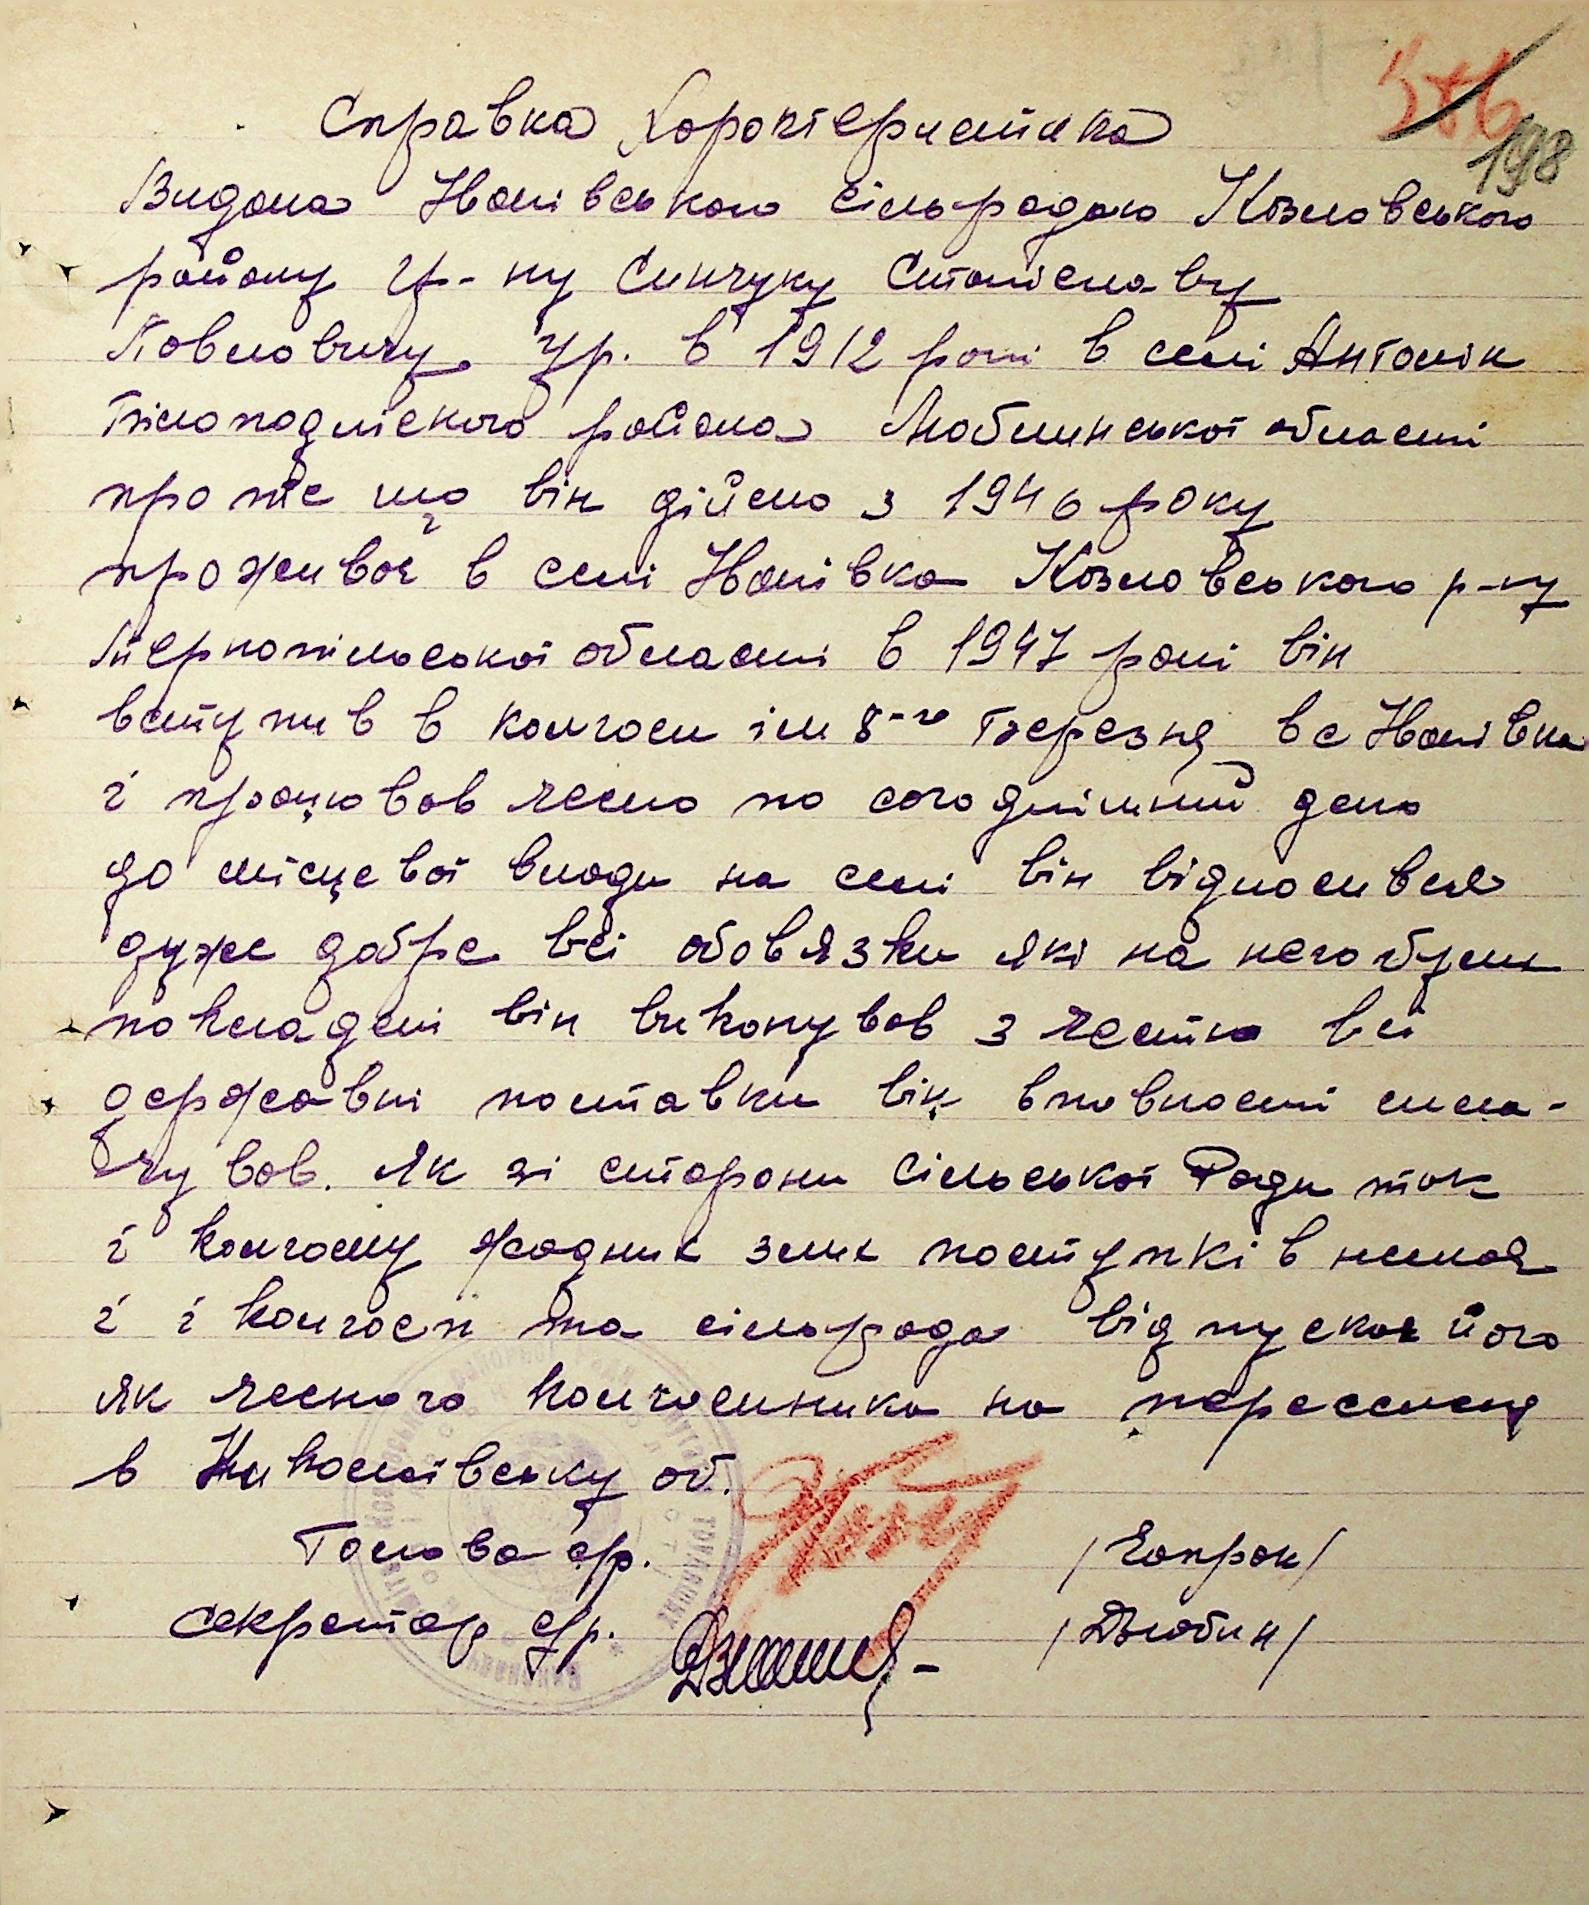 198
Справка Характеристика
Видана Іванівською сільрадою Козлівського
району гр-ну Синчуку Станіславу
Павловичу. Ур. в 1912 році в селі Антолін
Білоподліского района Люблинської області
про те що він дійсно з 1946 року
проживає в селі Іванівка Козлівського р-ну
Тернопільської області в 1947 році він
вступив в колгосп ім 8-го Березня в с Іванівка
і працював чесно по сьогоднішний день
до місцевої влади на селі він відносився
дуже добре всі обовязки які на него були
покладені він виконував з честю всі
державні поставки він вповності спла-
чував. Як зі сторони Сільської Ради так
і колгоспу жодних злих поступків немає
і і колгосп та сільрада відпускає його
як чесного колгоспника на переселеня
в Миколаївську об.
Голова с/р. /Чапрак/
Секретар с/р. /Дзюбин/